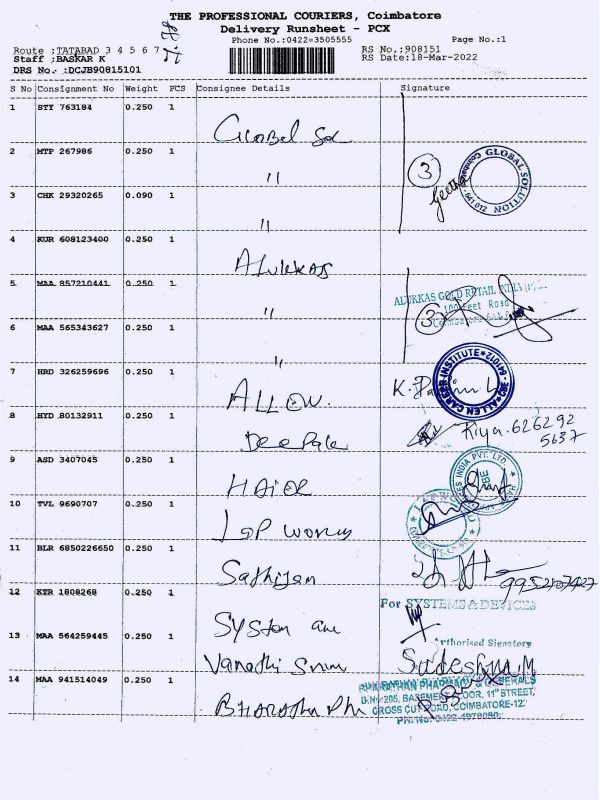 THE PROFESSIONAL COURIERS, Coimbatore
Delivery Runsheet - PCX
Phone No.:0422-3505555 Page No.:1
Route :TATABAD 3 4 5 6 7 RS No.:908151
Staff :BASKAR K RS Date:18-Mar-2022
DRS No. :DCJB90815101
S No Consignment No Weight PCS Consignee Details Signature
1 STY 763184 0.250 1
Global Sol
2 MTP 267986 0.250 1
" 3 Geetha
GLOBAL SOLUTION Coimbatore - 641 012
3 CHK 29320265 0.090 1
"
4 KUR 608123400 0.250 1
Alukkas
5 MAA 857210441 0.250 1
ALUKKAS GOLD RETAIL INDIA
100 Feet Road
" 3
6 MAA 565343627 0.250 1
"
7 HRD 326259696 0.250 1
ALLEN CAREER INSTITUTE
ALLEN. K.
8 HYD 80132911 0.250 1
Deepak Riya.626292
5637
9 ASD 3407045 0.250 1
INDIA PVT. LTD.
HAIER
10 TVL 9690707 0.250 1
Lap works
11 BLR 6850226650 0.250 1
Sathijan
12 KTR 1808268 0.250 1
For SYSTEMS & DEVICES
System
Authorised Signatory
13 MAA 564259445 0.250 1
Vanathi Sudeshna.M
14 MAA 941514049 0.250 1
BHARATHAN PHARMACY & GENERALS
D.No 205, BASEMENT FLOOR, 11th STREET,
CROSS CUT ROAD, COIMBATORE-12
PH.No: 0422-4978080